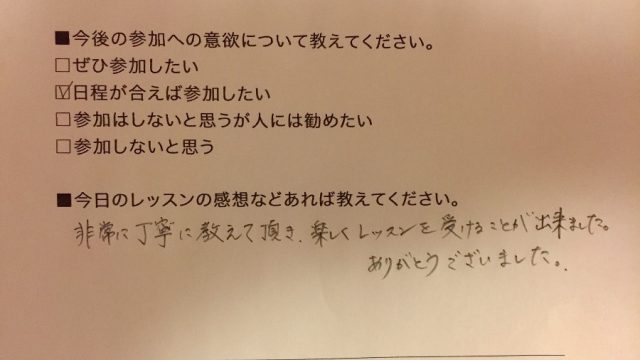 ■今後の参加への意欲について教えてください。
□ぜひ参加したい
☑日程が合えば参加したい
□参加はしないと思うが人には勧めたい
□参加しないと思う
■今日のレッスンの感想などあれば教えてください。
非常に丁寧に教えて頂き、楽しくレッスンを受けることが出来ました。
ありがとうございました。